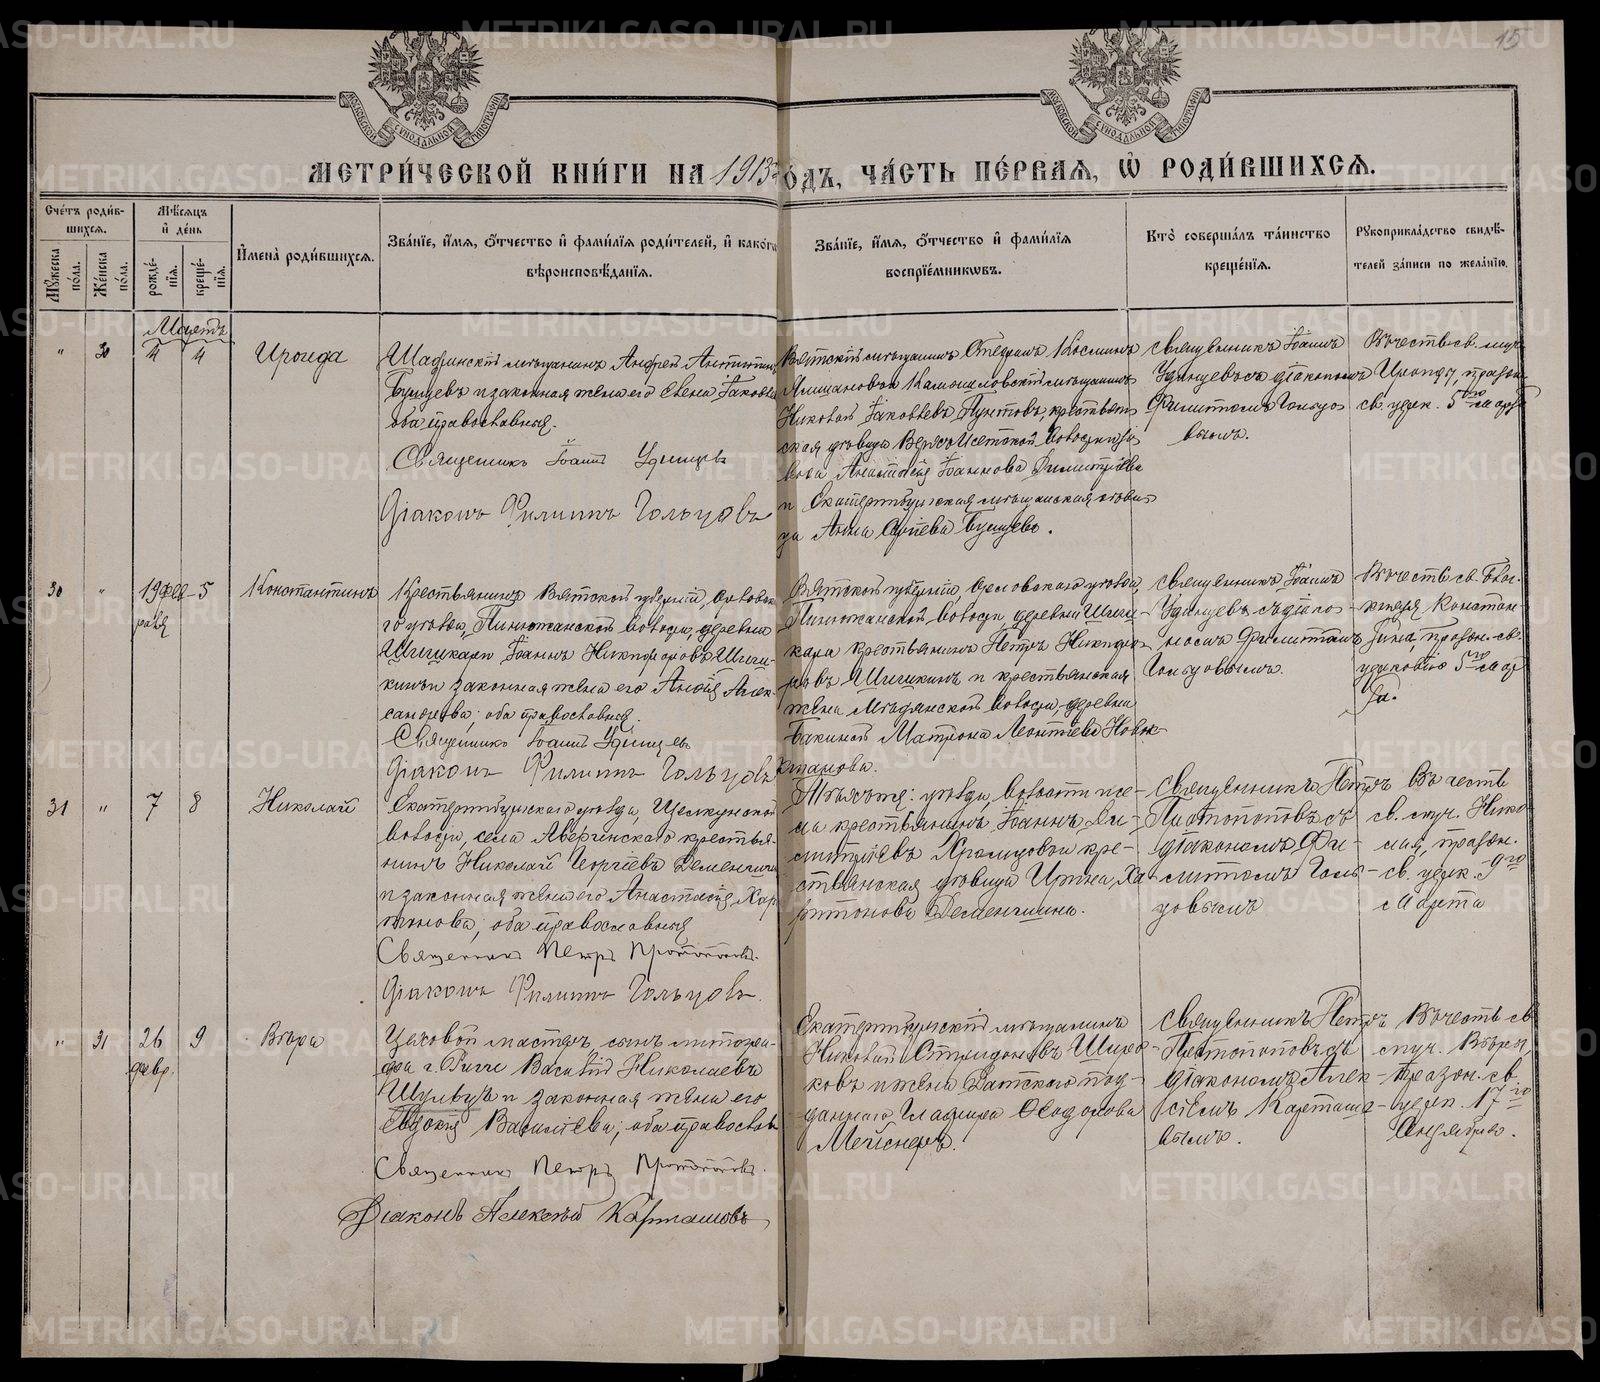 15
МОСКОВСКОЙ СѴНОДАЛЬНОЙ ТИПОГРАФІИ
МОСКОВСКОЙ СѴНОДАЛЬНОЙ ТИПОГРАФІИ
МЕТРИ́ЧЕСКОЙ КНИ́ГИ НА 1913 ГОДЪ, ЧА́СТЬ ПЕ́РВАѦ, Ѡ҆ РОДИ́ВШИХСѦ.
Сче́тъ роди́в-
шихсѧ.
Мѣ́сѧцъ
и҆ де́нь
Мꙋ́жеска по́ла.
Же́нска по́ла.
рожде́-
нїѧ.
креще́-
нїѧ.
И҆мена̀ роди́вшихсѧ.
Зва́нїе, и҆́мѧ, ѻ҆́тчество и҆ фами́лїѧ роди́телей, и҆ како́гѡ
вѣроисповѣ́данїѧ.
Зва́нїе, и҆́мѧ, ѻ҆́тчество и҆ фами́лїѧ
воспрїе́мникѡвъ.
Кто̀ соверша́лъ та́инство
креще́нїѧ.
Рꙋкоприкла́дство свидѣ́-
телей за́писи по жела́нїю.
Мартъ
" 30 4 4 Ироида
Шадринскій мѣщанинъ Андрей
и законная жена его Елена Іаковлева
оба православные.
Священникъ Іоаннъ Удинцевъ
Діаконъ Филиппъ Гольцовъ
Вятскій мѣщанинъ Стефанъ Косминъ
Камышловскій мѣщанинъ
Николай Іаковлевъ Пунтовъ, крестьян-
ская дѣвица Верхъ-Исетской волости
Іоаннова Димитріева
и Екатеринбургская мѣщанская дѣви-
ца Анна
Священникъ Іоаннъ
Удинцевъ съ діакономъ
Филиппомъ Гольцо-
вымъ.
Въ честь св. муч.
Ироиды, праздн.
св. церк. 5го Марта
30 " 19 фев-
раля 5 Константинъ
Крестьянинъ Вятской губерніи, Орловска-
го уѣзда, Пинюжанской волости, деревни
Шишкари Іоаннъ Никифоровъ Шиш-
кинъ и законная жена его Алек-
сандрова; оба православные.
Священникъ Іоаннъ Удинцевъ
Діаконъ Филиппъ Гольцовъ
Вятской губерніи, Орловскаго уѣзда,
Пинюжанской волости, деревни Шиш-
кари крестьянинъ Петръ Никифо-
ровъ Шишкинъ и крестьянская
жена волости, деревни
Матрона Леонтіева
Священникъ Іоаннъ
Удинцевъ съ діако-
номъ Филиппомъ
Гольцовымъ.
Въ честь св. Благ.
князя Констан-
тина, праздн. св.
церковію 5го Мар-
та.
31 " 7 8 Николай
Екатеринбургскаго уѣзда, Щелкунской
волости, села Аверинскаго крестья-
нинъ Николай Георгіевъ Деменьшинъ
и законная жена его Анастасія Хар-
тонова; оба православные
Священникъ Петръ Протопоповъ.
Діаконъ Филиппъ Гольцовъ.
Тѣхъ же: уѣзда, волости и се-
ла крестьянинъ Іоаннъ Ди-
митріевъ Храмцовъ и кре-
стьянская дѣвица Ирина Ха-
ритонова Деменьшина.
Священникъ Петръ
Протопоповъ съ
діакономъ Фи-
липпомъГоль-
цовымъ
Въ честь
св. муч. Нико-
лая, праздн.
св. церк. 9го
Марта
" 31 26
февр. 9 Вѣра
Цеховой мастеръ сынъ литогра-
фа г. Риги Василій Николаевъ
Шульцъ и законная жена его
Евдокія Васильева; оба православн.
Священникъ Петръ Протопоповъ.
Діаконъ Алексѣй Карташовъ
Екатеринбургскій мѣщанинъ
Николай Спиридоновъ Широ-
ковъ и жена Датскаго под-
даннаго Глафира Ѳеодорова
Мейснеръ.
Священникъ Петръ
Протопоповъ съ
діакономъ Алек-
сѣемъ Карташо-
вымъ.
Въ честь св.
муч. Вѣры,
праздн. св.
церк. 17го
Сентября.
METRIKI.GASO-URAL.RU